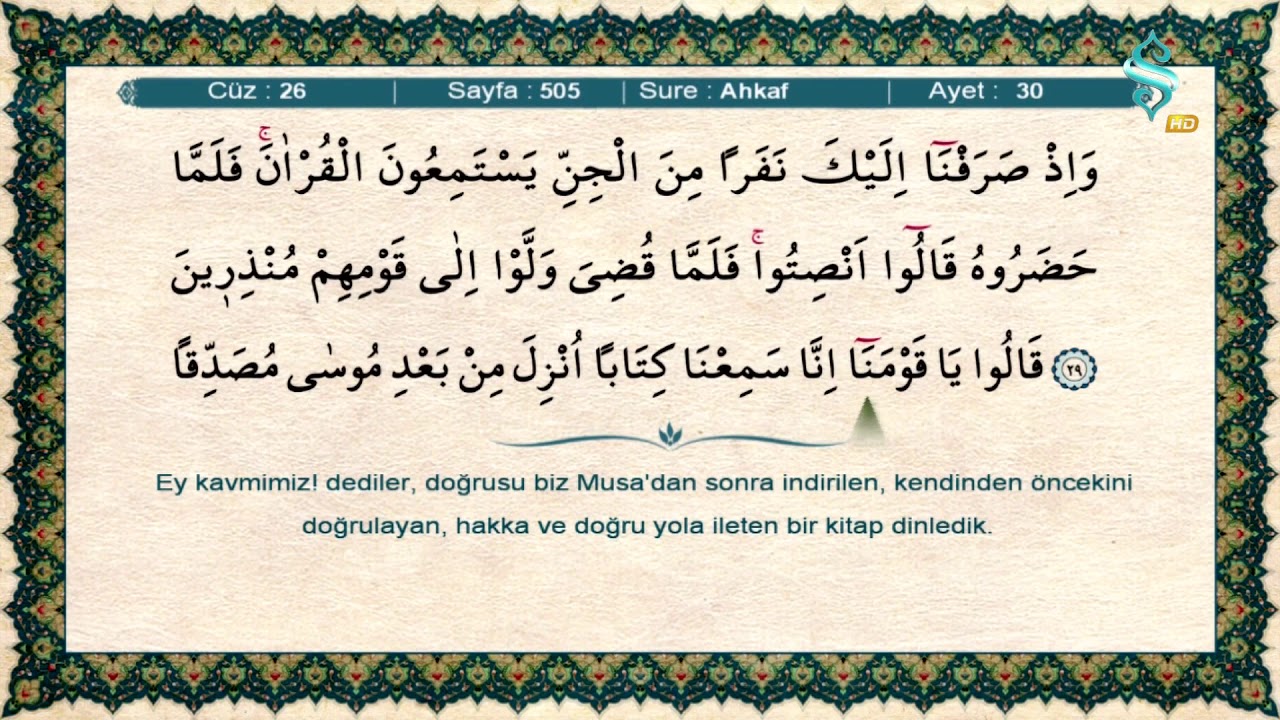 Cüz : 26 | Sayfa : 505 | Sure : Ahkaf | Ayet : 30
HD
وَاِذْ صَرَفْنَٓا اِلَيْكَ نَفَرًا مِنَ الْجِنِّ يَسْتَمِعُونَ الْقُرْاٰنَۚ فَلَمَّا
حَضَرُوهُ قَالُٓوا اَنْصِتُواۚ فَلَمَّا قُضِيَ وَلَّوْا اِلٰى قَوْمِهِمْ مُنْذِر۪ينَ
﴿٢٩﴾ قَالُوا يَا قَوْمَنَٓا اِنَّا سَمِعْنَا كِتَابًا اُنْزِلَ مِنْ بَعْدِ مُوسٰى مُصَدِّقًا
Ey kavmimiz! dediler, doğrusu biz Musa'dan sonra indirilen, kendinden öncekini
doğrulayan, hakka ve doğru yola ileten bir kitap dinledik.